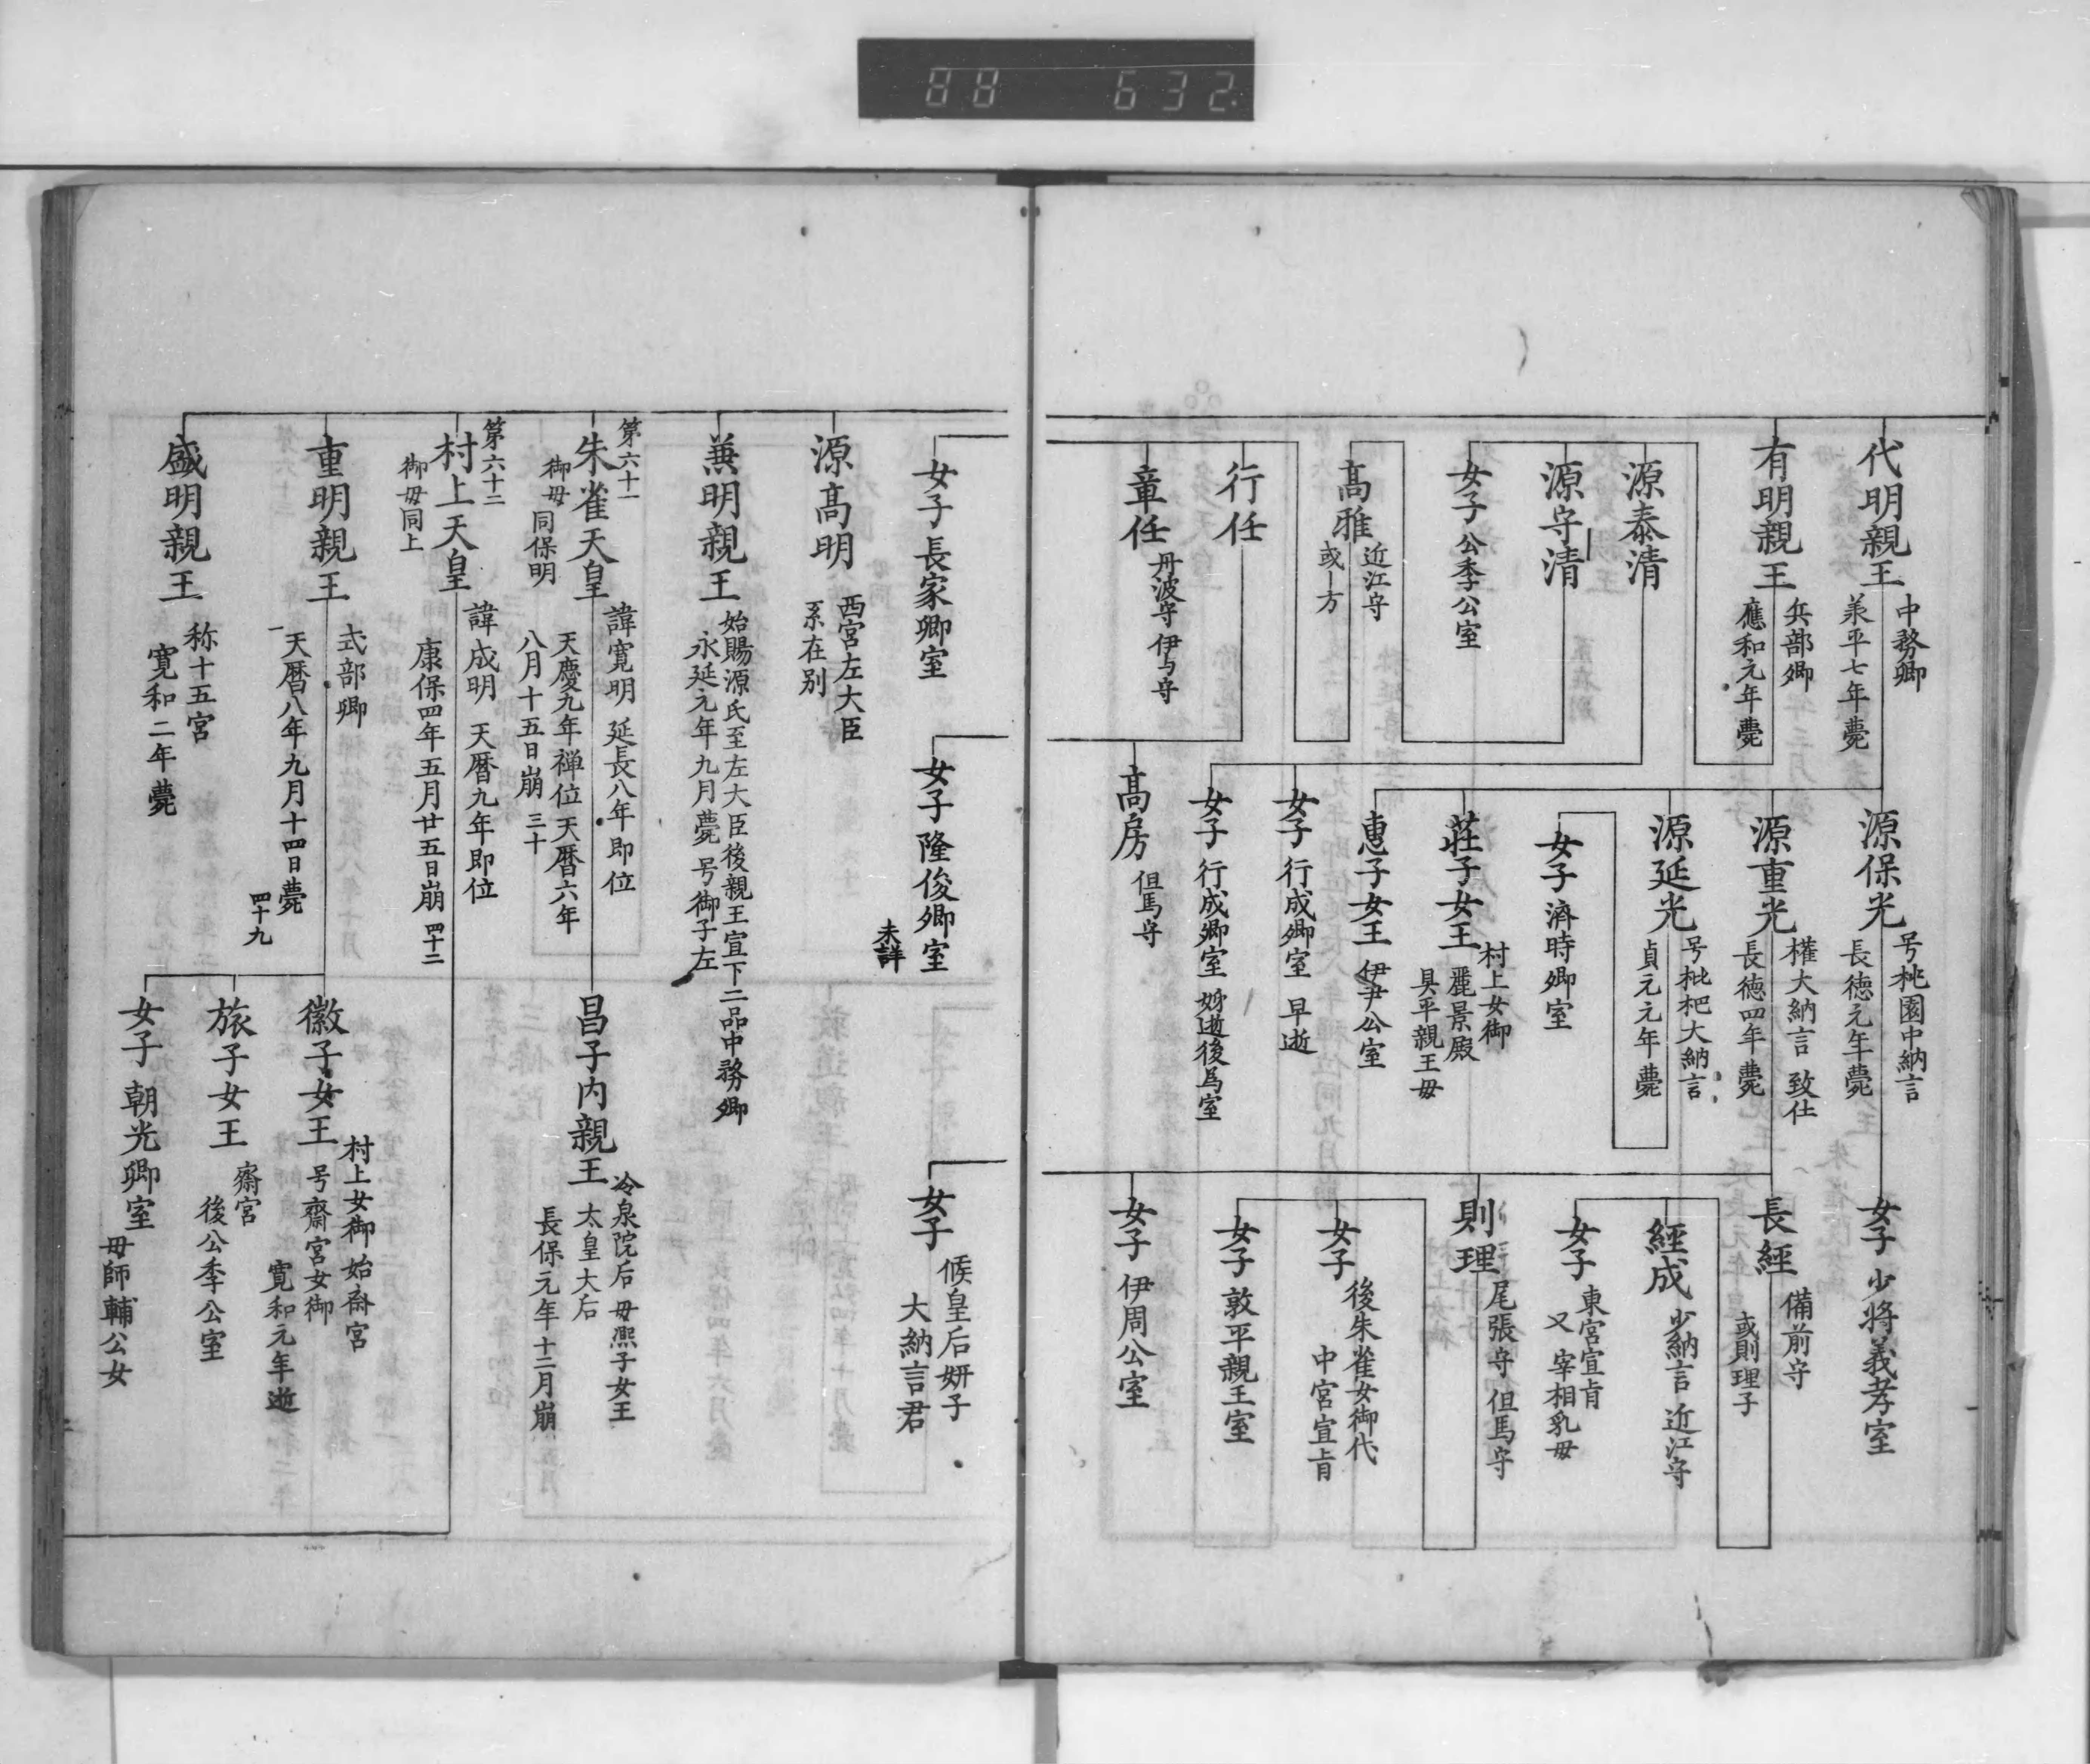 88 632
代明親王
中務卿
承平七年薨
有明親王
兵部卿
應和元年薨
源泰清
源守清
女子 公季公室
高雅
近江守
或方
行任
章任
丹波守 伊与守
源保光
号桃園中納言
長徳元年薨
源重光
権大納言 致仕
長徳四年薨
源延光
号枇杷大納言
貞元元年薨
女子 濟時卿室
莊子女王
村上女御
麗景殿
具平親王母
惠子女王 伊尹公室
女子 行成卿室 早逝
女子 行成卿室 姉逝後為室
高房 但馬守
女子 少將義孝室
長經
備前守
或則理子
經成 少納言 近江守
女子
東宮宣旨
又 宰相乳母
則理
尾張守 但馬守
女子
後朱雀女御代
中宮宣旨
女子 敦平親王室
女子 伊周公室
女子 長家卿室
女子 隆俊卿室
未詳
女子
候皇后妍子
大納言君
源高明
西宮左大臣
系在別
兼明親王
始賜源氏至左大臣後親王宣下二品中務卿
永延元年九月薨 号御子左
第六十一
朱雀天皇
御母同保明
諱寛明 延長八年即位
天慶九年禅位 天暦六年
八月十五日崩 三十
昌子内親王
冷泉院后 母熙子女王
太皇大后
長保元年十二月崩
第六十二
村上天皇
御母同上
諱成明 天暦九年即位
康保四年五月廿五日崩 四十二
重明親王
式部卿
天暦八年九月十四日薨
四十九
徽子女王
村上女御 始斎宮
号齋宮女御
寛和元年逝
旅子女王
齋宮
後公季公室
女子 朝光卿室
母師輔公女
盛明親王
称十五宮
寛和二年薨